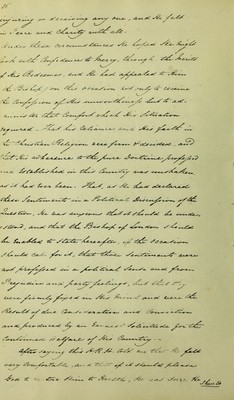 injuring or deceiving any one, and He felt
in Peace and Charity with all.
Under these circumstances He hoped He might
look with Confidence to Mercy, through the merits
of His Redeemer, and He had appealed to Him
(the Bishop) on this occasion not only to receive
the Confession of His unworthiness but to ad-
minister that Comfort which His Situation
required – That his reliance and His faith in
the Christian Religion were firm & decided, and
that His adherence to the pure Doctrine, professed
and established in this Country was unshaken
as it had ever been. That, as He had declared
these Sentiments in a Political Discussion of the
Question, He was anxious that it should be under-
stood, and that the Bishop of London should
be enabled to state hereafter, if the occasion
should call for it, that those Sentiments were
not professed in a political Sense and from
Prejudice and party feelings, but that they
were firmly fixed in His mind and were the
Result of due Consideration and Conviction
and produced by an earnest Solicitude for the
Continued Welfare of His Country –
After saying this H.R.H. told me that He felt
very Comfortable, and that if it should please
God to restore Him to Health, He was sure He
should